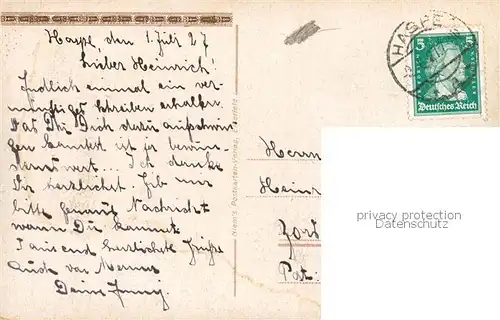 Haspe, den 1. Juli 27
Lieber Heinrich!
Endlich einmal ein ver-
nünftiges Schreiben erhalten.
Das Du Dich dazu aufschwin-
gen konntest ist ja bewun-
dernswert... Ich danke
Dir herzlichst. Gib mir
bitte genaue Nachricht
wann Du kommst.
Tausend herzlichste Grüße
auch von
Deine
HASPE
5 5
Deutsches Reich
Herrn
Hein
privacy protection
Datenschutz